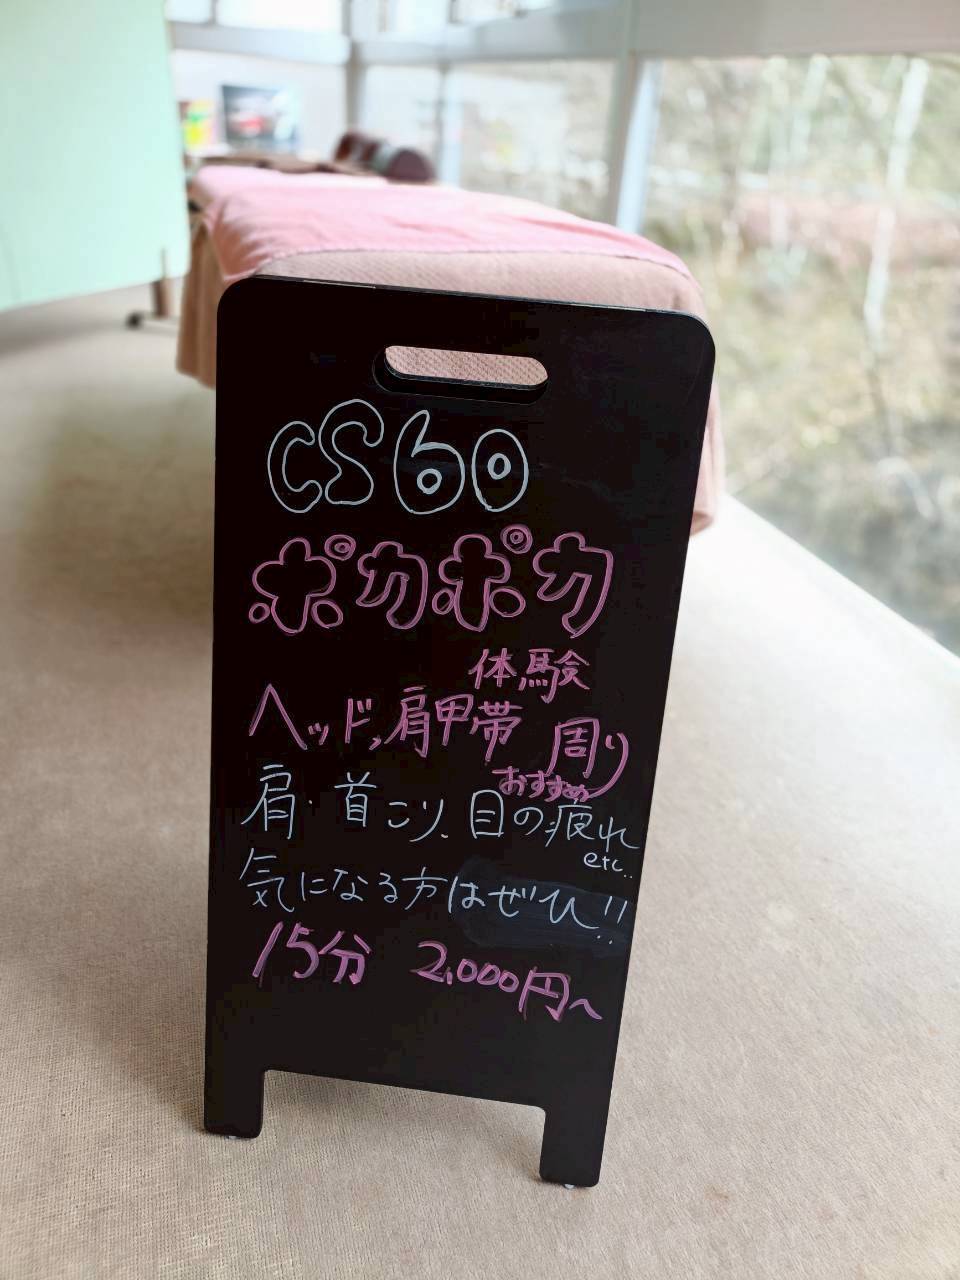 CS60
ポカポカ
体験
ヘッド,肩甲帯 周り
おすすめ
肩・首こり、目の疲れ
etc..
気になる方はぜひ!!
15分 2,000円〜